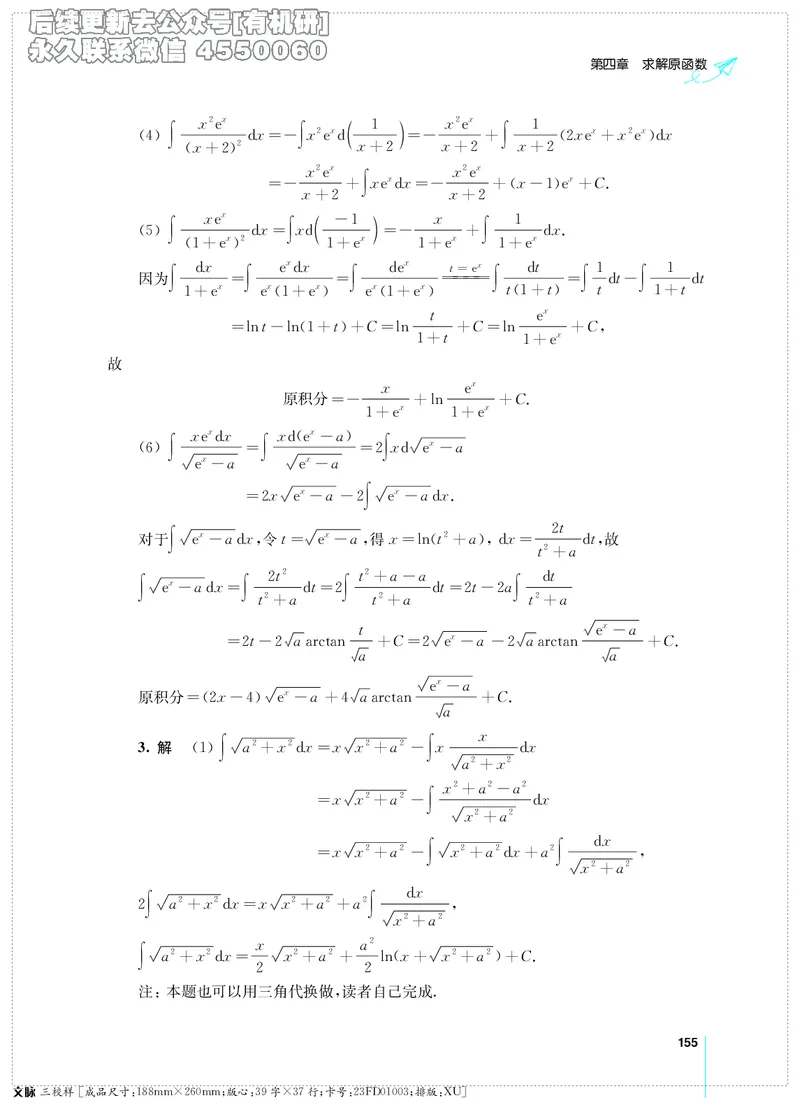 后续更新去公众号[有机研]
永久联系微信 4550060
第四章 求解原函数
(4) ∫ x²eˣ/(x+2)² dx = −∫x²eˣd(1/(x+2)) = −x²eˣ/(x+2) + ∫ 1/(x+2) (2xeˣ+x²eˣ)dx
= −x²eˣ/(x+2) + ∫xeˣdx = −x²eˣ/(x+2) + (x−1)eˣ+C.
(5) ∫ xeˣ/(1+eˣ)² dx = ∫xd(−1/(1+eˣ)) = −x/(1+eˣ) + ∫ 1/(1+eˣ) dx.
因为∫ dx/(1+eˣ) = ∫ eˣdx/(eˣ(1+eˣ)) = ∫ deˣ/(eˣ(1+eˣ)) =(t=eˣ)= ∫ dt/(t(1+t)) = ∫ 1/t dt − ∫ 1/(1+t) dt
= lnt−ln(1+t)+C = ln t/(1+t) +C = ln eˣ/(1+eˣ) +C,
故
原积分 = −x/(1+eˣ) + ln eˣ/(1+eˣ) +C.
(6) ∫ xeˣdx/√(eˣ−a) = ∫ xd(eˣ−a)/√(eˣ−a) = 2∫xd√(eˣ−a)
= 2x√(eˣ−a) −2∫√(eˣ−a)dx.
对于∫√(eˣ−a)dx,令 t=√(eˣ−a),得 x=ln(t²+a), dx= 2t/(t²+a) dt,故
∫√(eˣ−a)dx = ∫ 2t²/(t²+a) dt = 2∫ (t²+a−a)/(t²+a) dt = 2t−2a∫ dt/(t²+a)
= 2t−2√a arctan t/√a +C = 2√(eˣ−a) −2√a arctan √(eˣ−a)/√a +C.
原积分=(2x−4)√(eˣ−a) +4√a arctan √(eˣ−a)/√a +C.
3. 解 (1) ∫√(a²+x²)dx = x√(x²+a²) − ∫x x/√(a²+x²) dx
= x√(x²+a²) − ∫ (x²+a²−a²)/√(x²+a²) dx
= x√(x²+a²) − ∫√(x²+a²)dx + a²∫ dx/√(x²+a²),
2∫√(a²+x²)dx = x√(x²+a²) + a²∫ dx/√(x²+a²),
∫√(a²+x²)dx = x/2 √(x²+a²) + a²/2 ln(x+√(x²+a²))+C.
注: 本题也可以用三角代换做,读者自己完成.
155
文脉 三校样 [成品尺寸:188mm×260mm;版心:39字×37行;卡号:23FD01003;排版:XU]